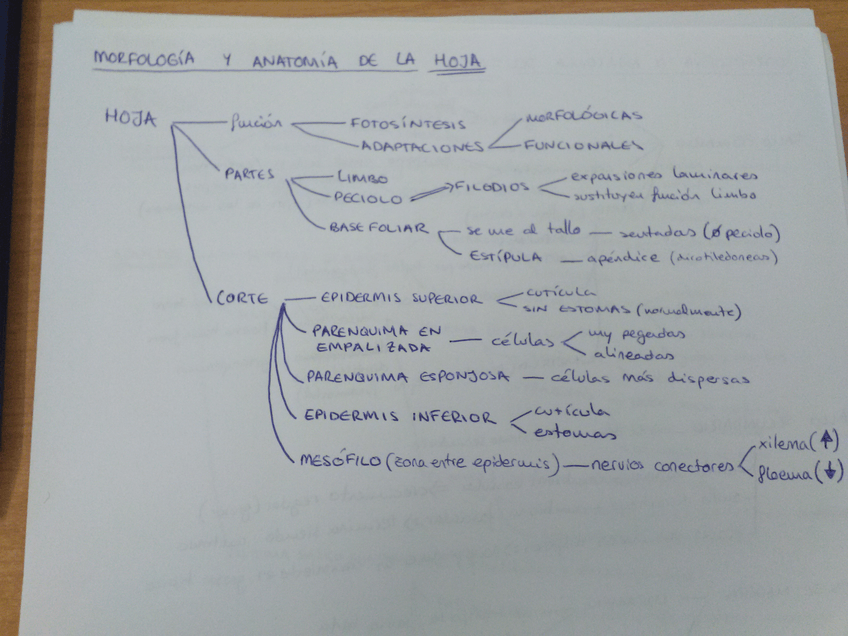 MORFOLOGÍA Y ANATOMÍA DE LA HOJA
HOJA función FOTOSÍNTESIS MORFOLÓGICAS
ADAPTACIONES FUNCIONALES
PARTES LIMBO expansiones laminares
PECIOLO FILODIOS sustituyen función limbo
BASE FOLIAR se une al tallo sentadas (Ø peciolo)
ESTÍPULA apéndice (dicotiledoneas)
CORTE EPIDERMIS SUPERIOR cutícula
SIN ESTOMAS (normalmente)
PARENQUIMA EN EMPALIZADA células muy pegadas
alineadas
PARENQUIMA ESPONJOSA células más dispersas
EPIDERMIS INFERIOR cutícula
estomas
MESÓFILO (zona entre epidermis) nervios conectores xilema (↑)
floema (↓)